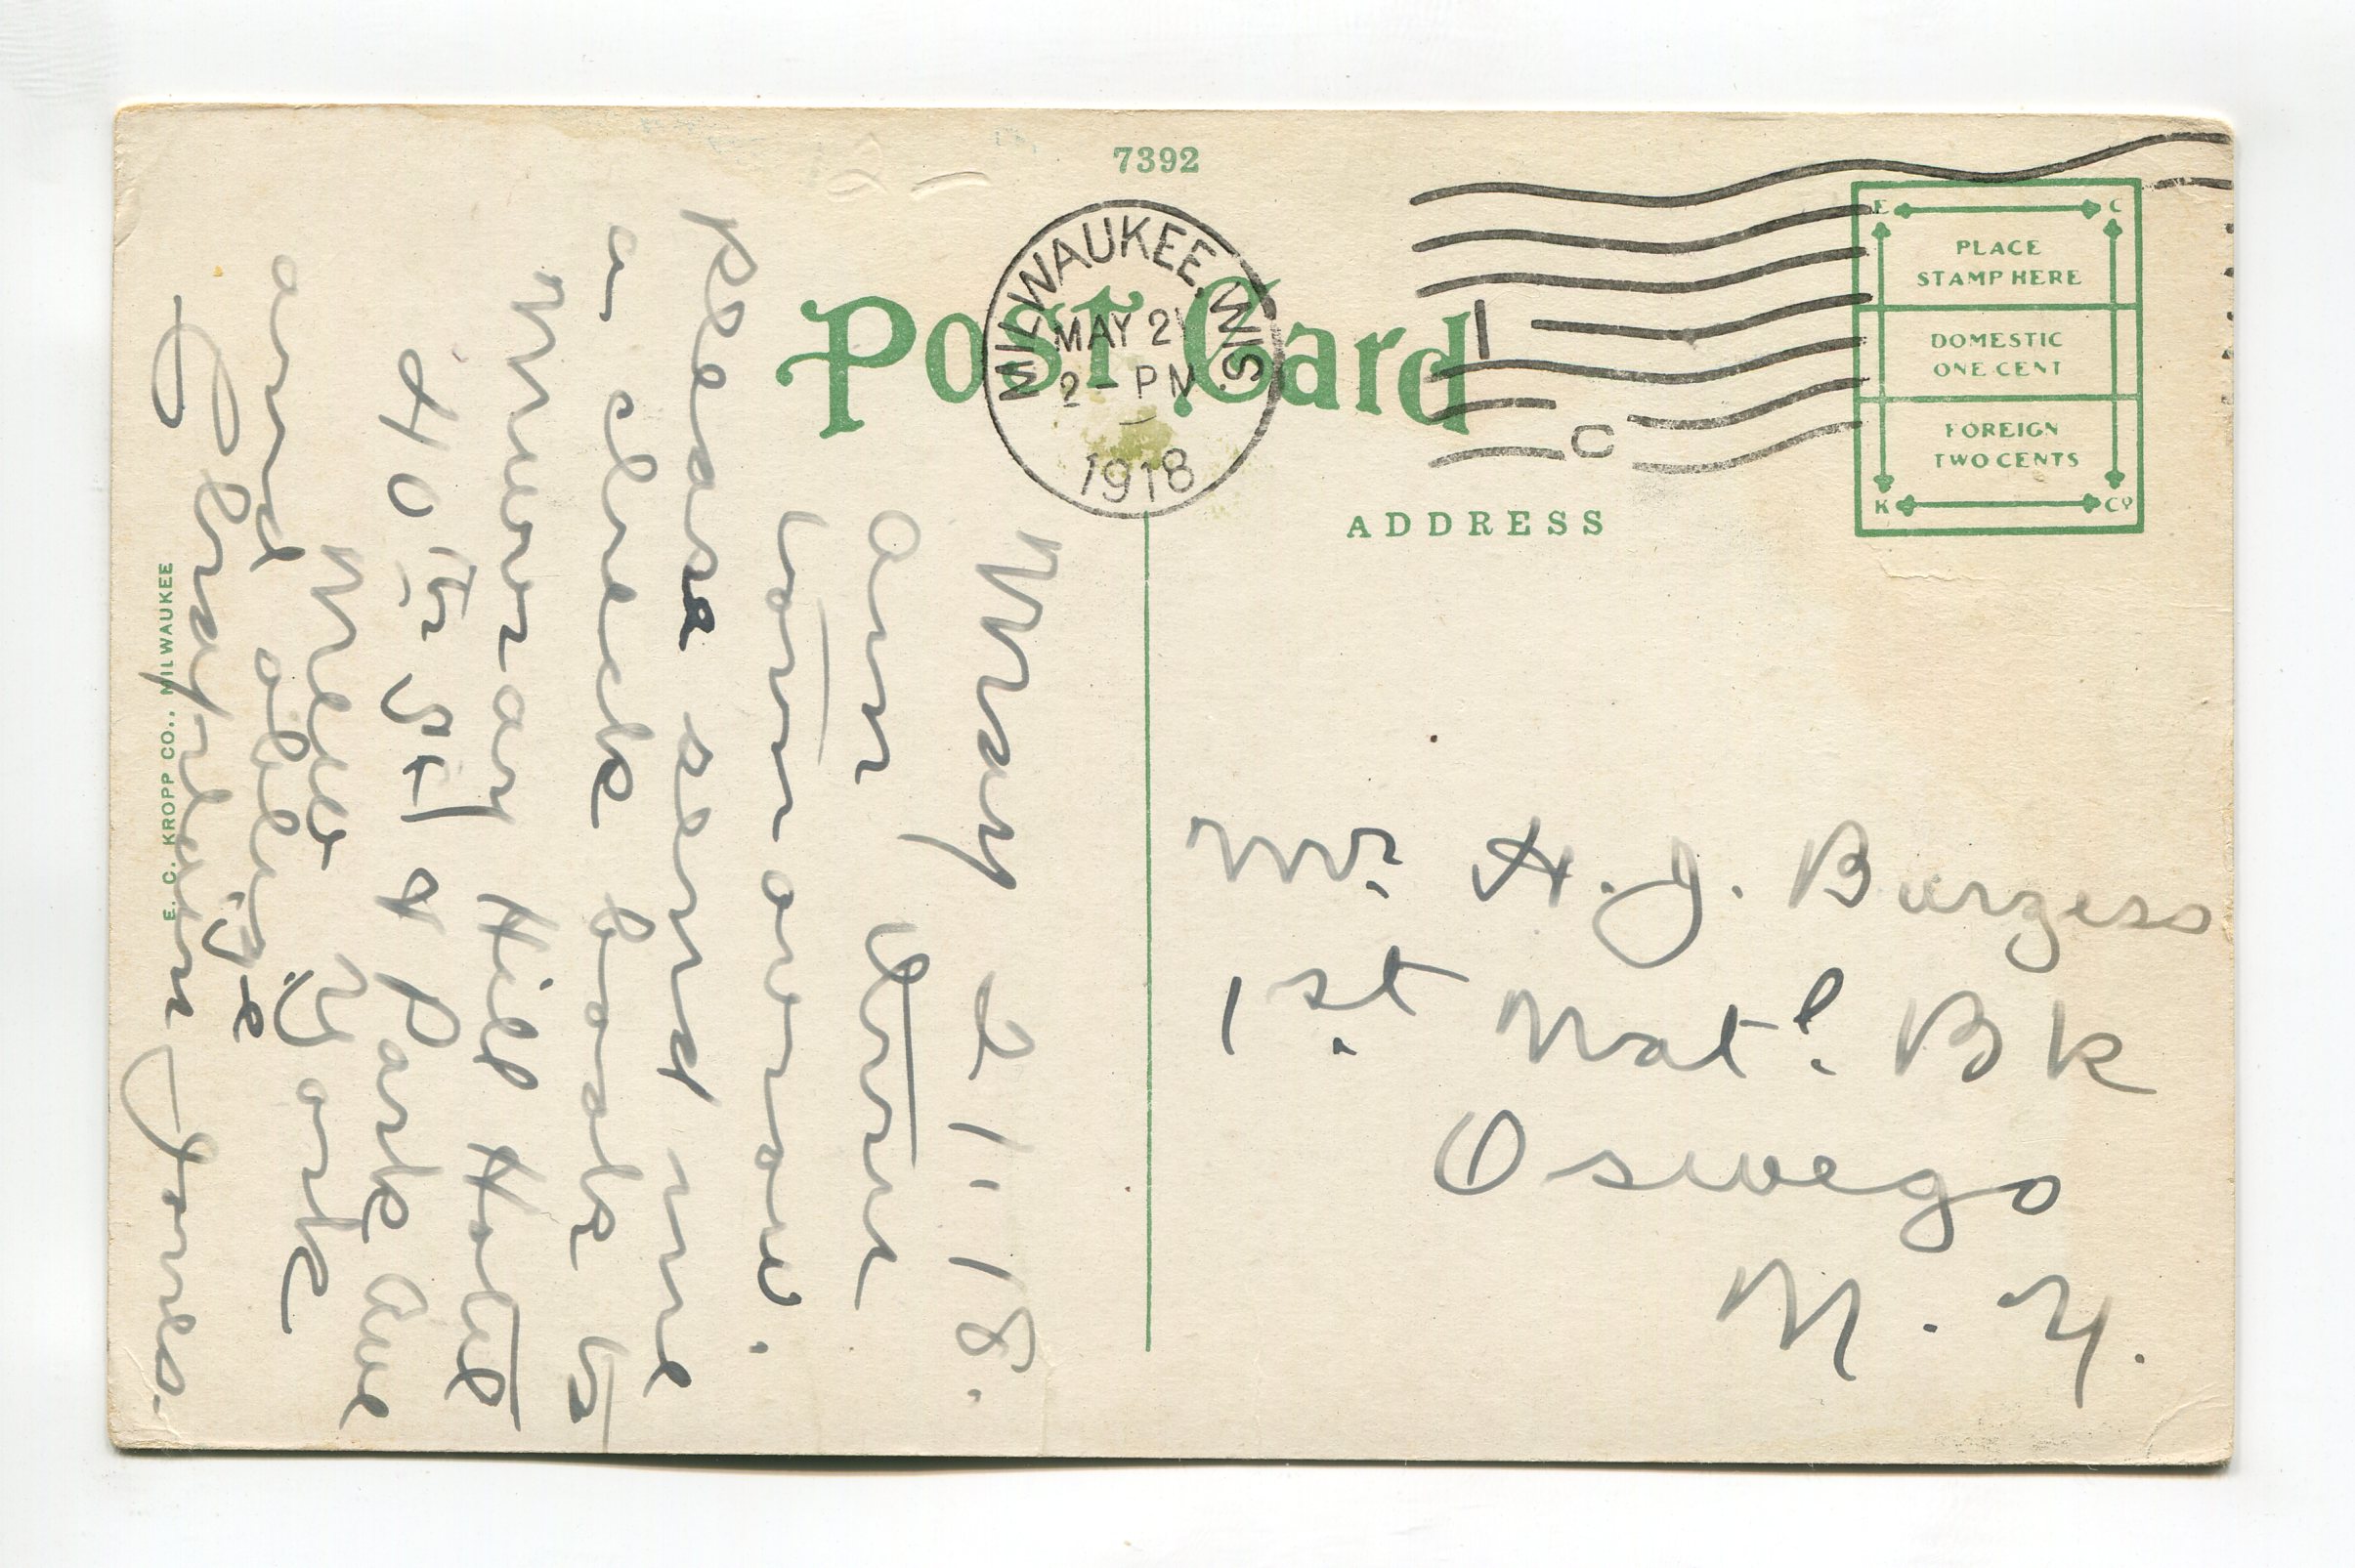 7392
POST CARD
MILWAUKEE, WIS.
MAY 21
2 - PM
1918
1
C
E C
PLACE
STAMP HERE
DOMESTIC
ONE CENT
FOREIGN
TWO CENTS
K Cº
ADDRESS
May 21.18.
Am
tomorrow.
Please send me
a check book to
Murray Hill Hotel
40th St & Park Ave
New York
and oblige
Jones.
Mr. H. J. Burgess
1st Natl. Bk
Oswego
N. Y.
E. C. KROPP CO., MILWAUKEE